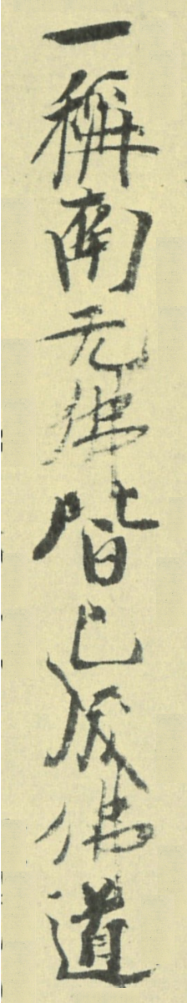 一稱南无佛皆已成佛道